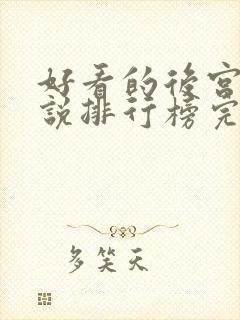 好看的後宮
說排行榜完
多笑天